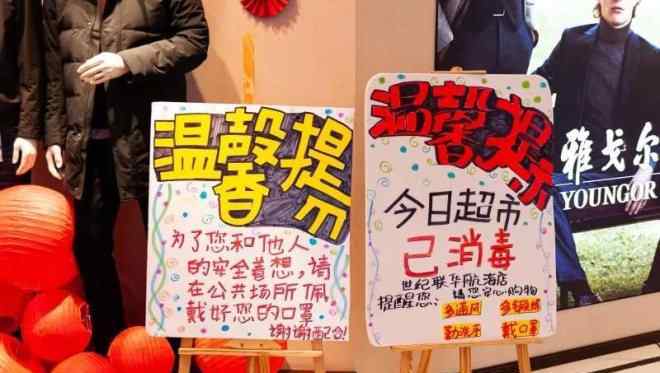 温馨提示
为了您和他人
的安全着想,请
在公共场所佩
戴好您的口罩
谢谢配合!
温馨提示
今日超市
已消毒
世纪联华航海店
提醒您、请您安心购物
多通风
勤洗手 戴口罩
雅戈尔
YOUNGOR